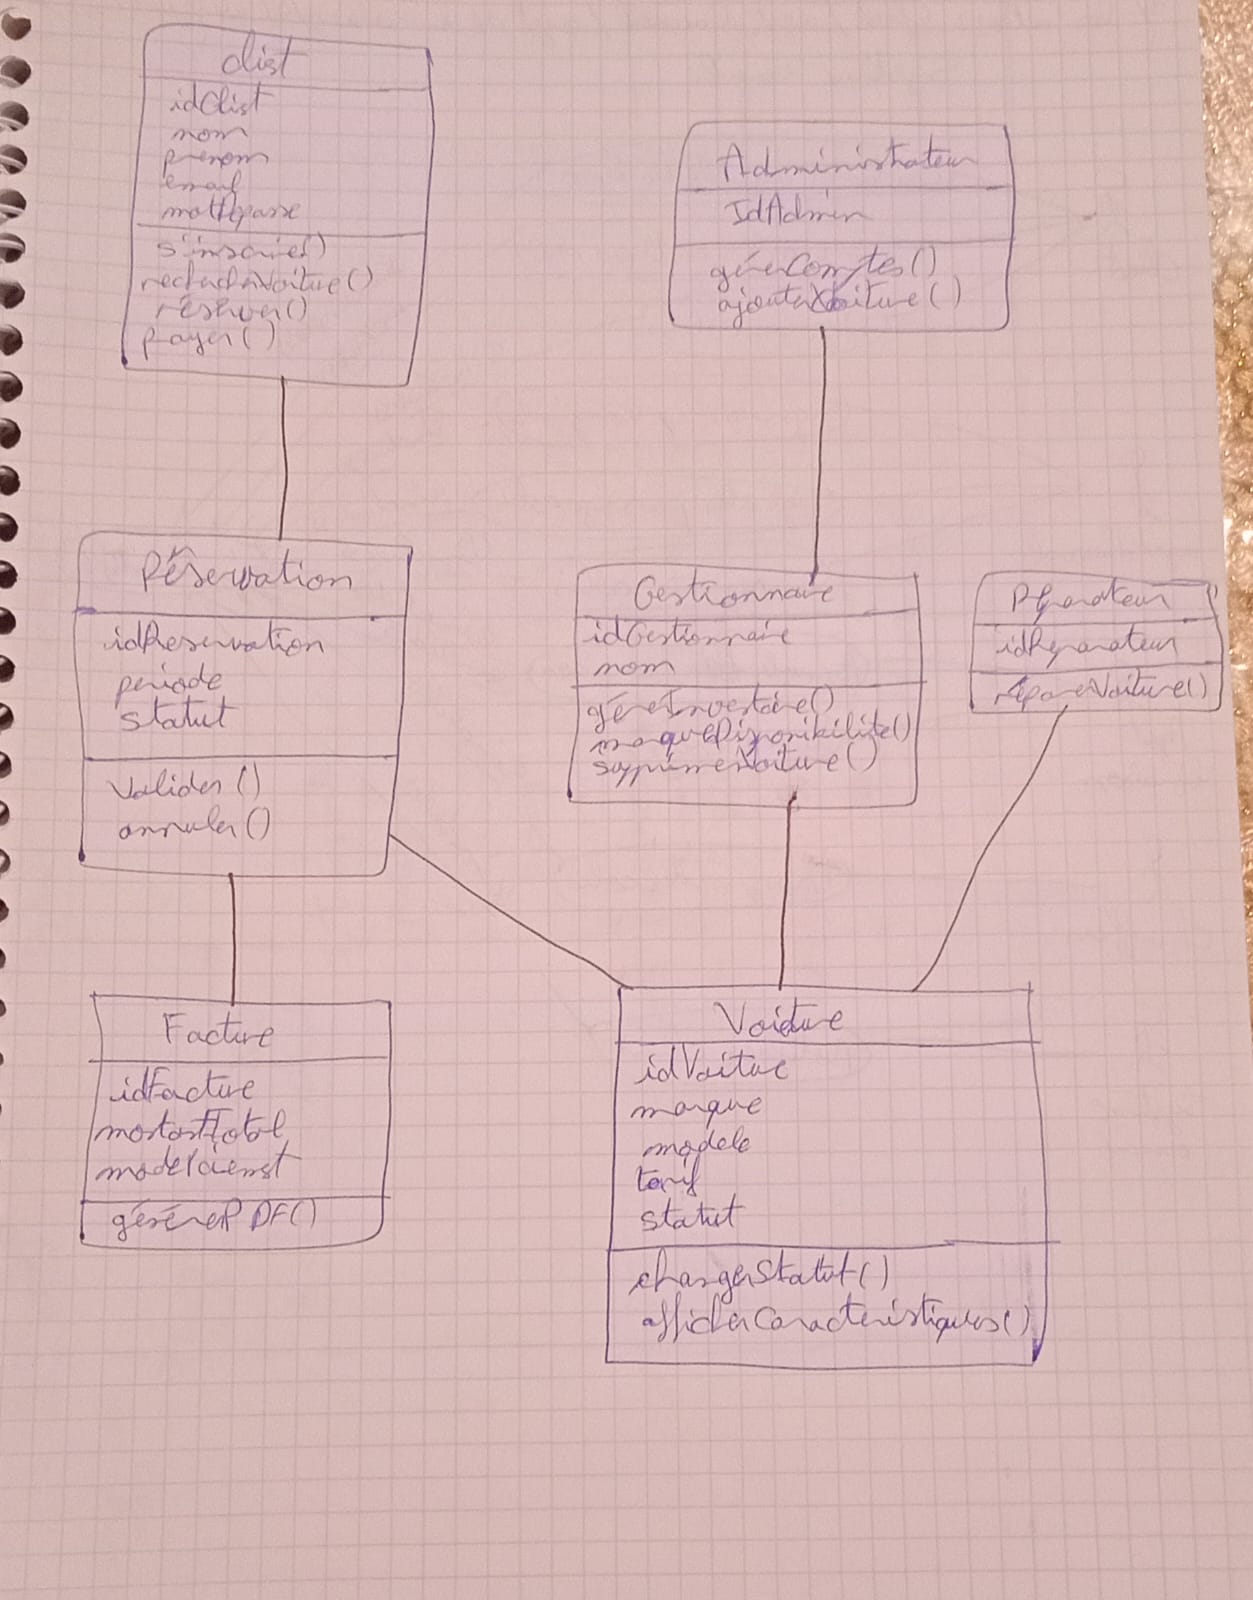 client
idClient
nom
prenom
email
motDepasse
s'inscrire()
rechercherVoiture()
réserver()
payer()
Administrateur
IdAdmin
gérerComptes()
ajouterVoiture()
Réservation
idReservation
periode
statut
Valider()
annuler()
Gestionnaire
idGestionnaire
nom
gérerInventaire()
marquerDisponibilite()
supprimerVoiture()
Réparateur
idReparateur
réparerVoiture()
Facture
idFacture
montantTotal
générerPDF()
Voiture
idVoiture
marque
modele
tarif
statut
changerStatut()
afficherCaracteristiques()